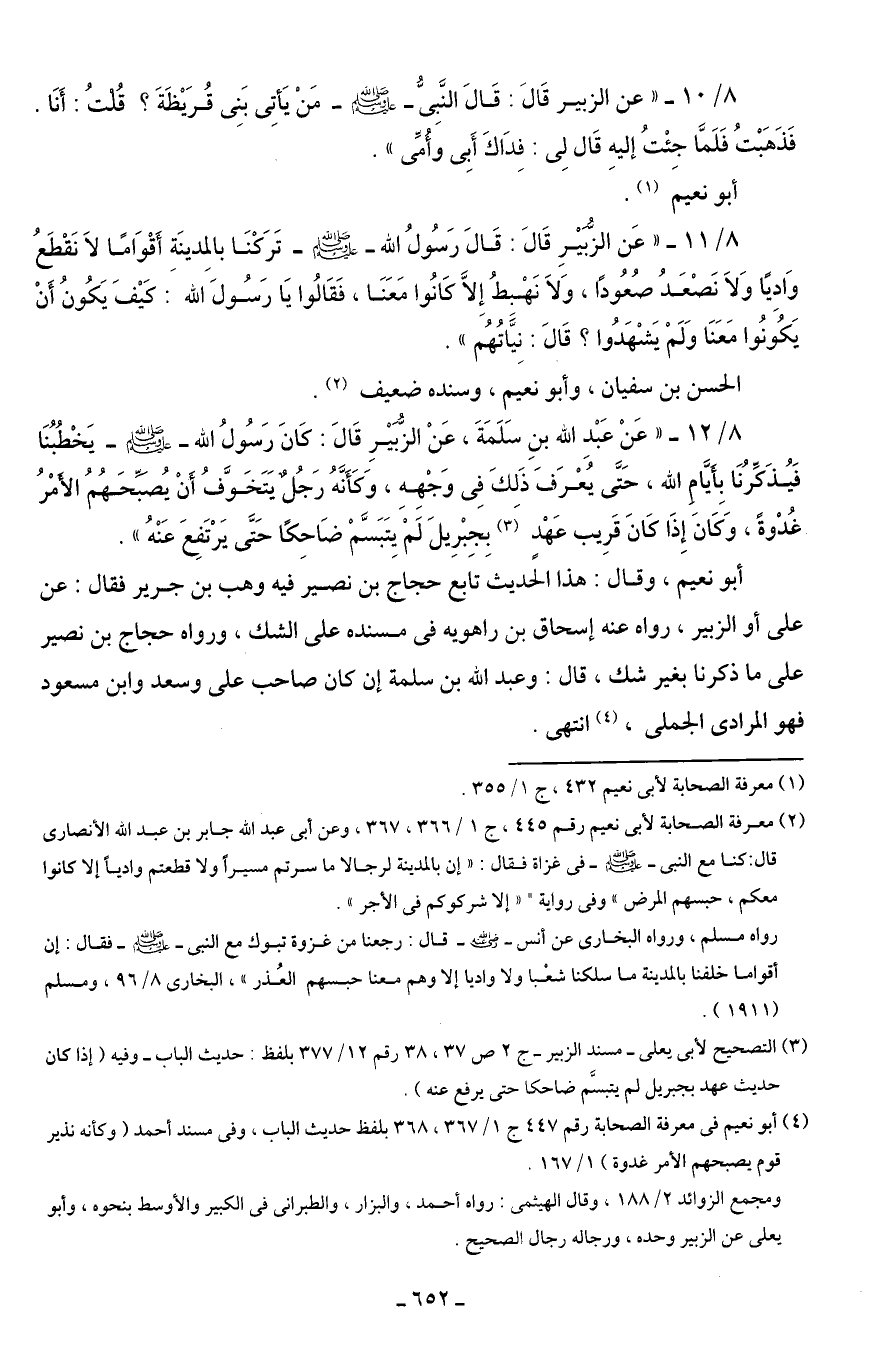 ٨/ ١٠ ـ « عن الزبيـر قَالَ : قَـالَ النَّبِىُّ ـ ﷺ ـ مَنْ يَأتِى بَنِى قُـرَيْظَةَ ؟ قُلْتُ : أنَا .
فَذَهَبْتُ فَلَمَّا جِئْتُ إليهِ قَال لِى : فِدَاكَ أبِى وأُمِّى » .
أبو نعيم (١) .
٨/ ١١ ـ « عَن الزُّبَيْـرِ قَالَ : قَـالَ رَسُولُ الله ـ ﷺ ـ تَرَكْنَـا بالمِدينَةِ أقْوَامًـا لاَ نَقْطَعُ
وَاديًا وَلاَ نَصْعَـدُ صُعُودًا ، وَلاَ نَهْـبِطُ إلاَّ كَانُوا مَعَنَـا ، فَقَالُوا يَا رَسُـولَ الله : كَيْفَ يَكُونُ أنْ
يَكُونُوا مَعَنَا وَلَمْ يَشْهَدُوا ؟ قَالَ : نِيَّاتُهُم » .
الحسن بن سفيان ، وأبو نعيم ، وسنده ضعيف (٢) .
٨/ ١٢ ـ « عَنْ عَبْدِ الله بنِ سَلَمَةَ ، عَنْ الزُّبَيْـرِ قَالَ : كَانَ رَسُولُ الله ـ ﷺ ـ يَخْطُبُنَا
فَيُـذَكِّرُنَا بأيَّامِ الله ، حَتَّى يُعْـرَفَ ذَلِكَ فِى وَجْهِـهِ ، وَكَأنَّهُ رَجُلٌ يَتَخَـوَّفُ أنْ يُصَبِّحَـهُمُ الأمْرُ
غُدْوَةً ، وَكَانَ إذَا كَانَ قَرِيب عَهْدٍ (٣) بِجِبْرِيلَ لَمْ يَتَبَسَّمْ ضَاحِكًا حَتَّى يَرْتَفِعَ عَنْهُ » .
أبو نعيم ، وقـال : هذا الحديث تابع حجاج بن نصـير فيه وهب بن جـرير فقال : عن
على أو الزبير ، رواه عنه إسحاق بن راهويه فى مـسنده على الشك ، ورواه حجاج بن نصير
على ما ذكرنا بغير شك ، قال : وعبد الله بن سلمة إن كان صاحب على وسعد وابن مسعود
فهو المرادى الجملى ، (٤) انتهى .
(١) معرفة الصحابة لأبى نعيم ٤٣٢ ، ج ١/ ٣٥٥ .
(٢) معـرفة الصـحابة لأبى نعيم رقـم ٤٤٥ ، ج ١ / ٣٦٦ ، ٣٦٧ ، وعن أبى عبد الله جـابر بن عبـد الله الأنصارى
قال:كنـا مع النبى ـ ﷺ ـ فى غزاة فـقال : « إن بالمدينة لرجـالا ما سـرتم مسيـراً ولا قطعتم واديـاً إلا كانوا
معكم ، حبسهم المرض » وفى رواية " « إلا شركوكم فى الأجر » .
رواه مـسلم ، ورواه البخـارى عن أنس ـ رضي الله عنه ـ قـال : رجعنا من غـزوة تبـوك مع النبى ـ ﷺ ـ فقـال : إن
أقوامـا خلفنا بالمدينة مـا سلكنا شعْـبا ولا واديا إلا وهم مـعنا حبـسهم العُـذر » ، البخارى ٨/ ٩٦ ، ومـسلم
(١٩١١ ) .
(٣) التصحيح لأبى يعلى ـ مسند الزبير ـ ج ٢ ص ٣٧ ، ٣٨ رقم ١٢/ ٣٧٧ بلفظ : حديث الباب ـ وفيه ( إذا كان
حديث عهد بجبريل لم يتبسَّم ضاحكا حتى يرفع عنه ) .
(٤) أبو نعيم فى معرفة الصحابة رقم ٤٤٧ ج ١/ ٣٦٧ ، ٣٦٨ بلفظ حديث الباب ، وفى مسند أحمد ( وكأنه نذير
قوم يصبحهم الأمر غدوة ) ١/ ١٦٧ .
ومجمع الزوائد ٢/ ١٨٨ ، وقال الهيثمى : رواه أحـمد ، والبزار ، والطبرانى فى الكبير والأوسط بنحوه ، وأبو
يعلى عن الزبير وحده ، ورجاله رجال الصحيح .
ـ ٦٥٢ ـ